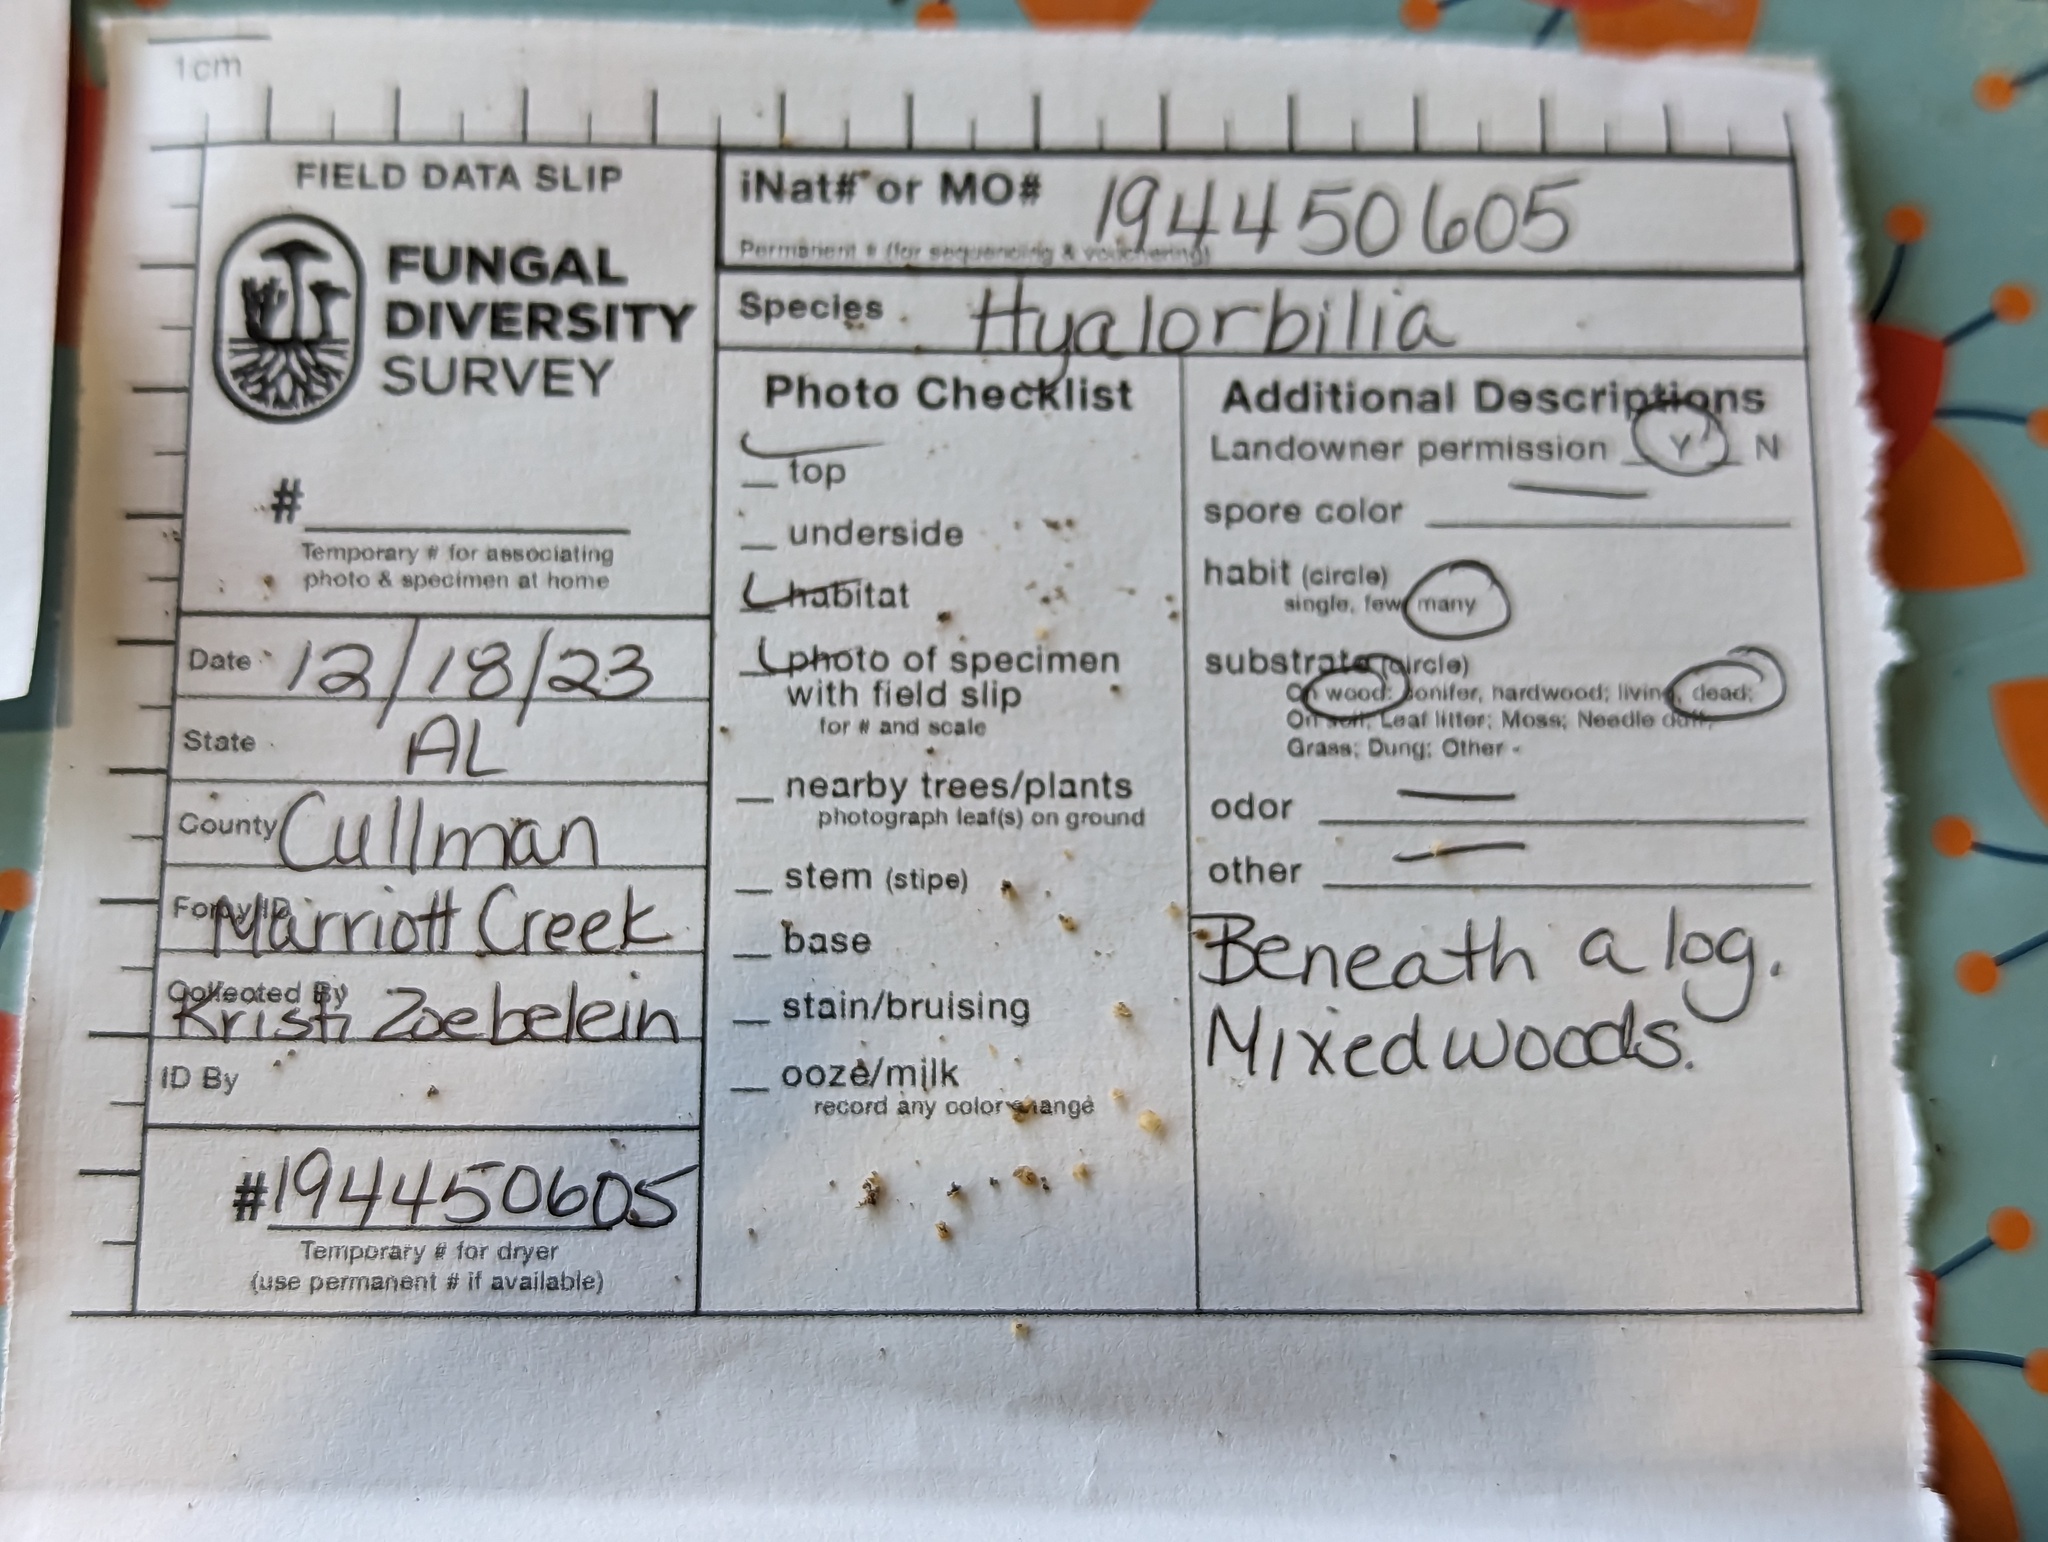 1cm
FIELD DATA SLIP
FUNGAL
DIVERSITY
SURVEY
#
Temporary # for associating
photo & specimen at home
Date 12/18/23
State AL
County Cullman
Foray ID Marriott Creek
Collected By Kristi Zoebelein
ID By
#194450605
Temporary # for dryer
(use permanent # if available)
iNat# or MO# 194450605
Permanent # (for sequencing & vouchering)
Species Hyalorbilia
Photo Checklist
top
underside
habitat
photo of specimen
with field slip
for # and scale
nearby trees/plants
photograph leaf(s) on ground
stem (stipe)
base
stain/bruising
ooze/milk
record any color change
Additional Descriptions
Landowner permission Y N
spore color
habit (circle)
single, few, many
substrate (circle)
On wood: conifer, hardwood; living, dead;
On soil; Leaf litter; Moss; Needle duff;
Grass; Dung; Other -
odor
other
Beneath a log.
Mixed woods.